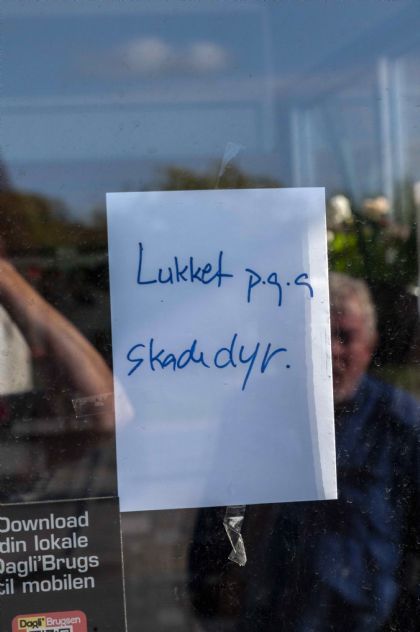 Lukket p.g.a
skadedyr.
Download
din lokale
Dagli'Brugs
til mobilen
Dagli'Brugsen